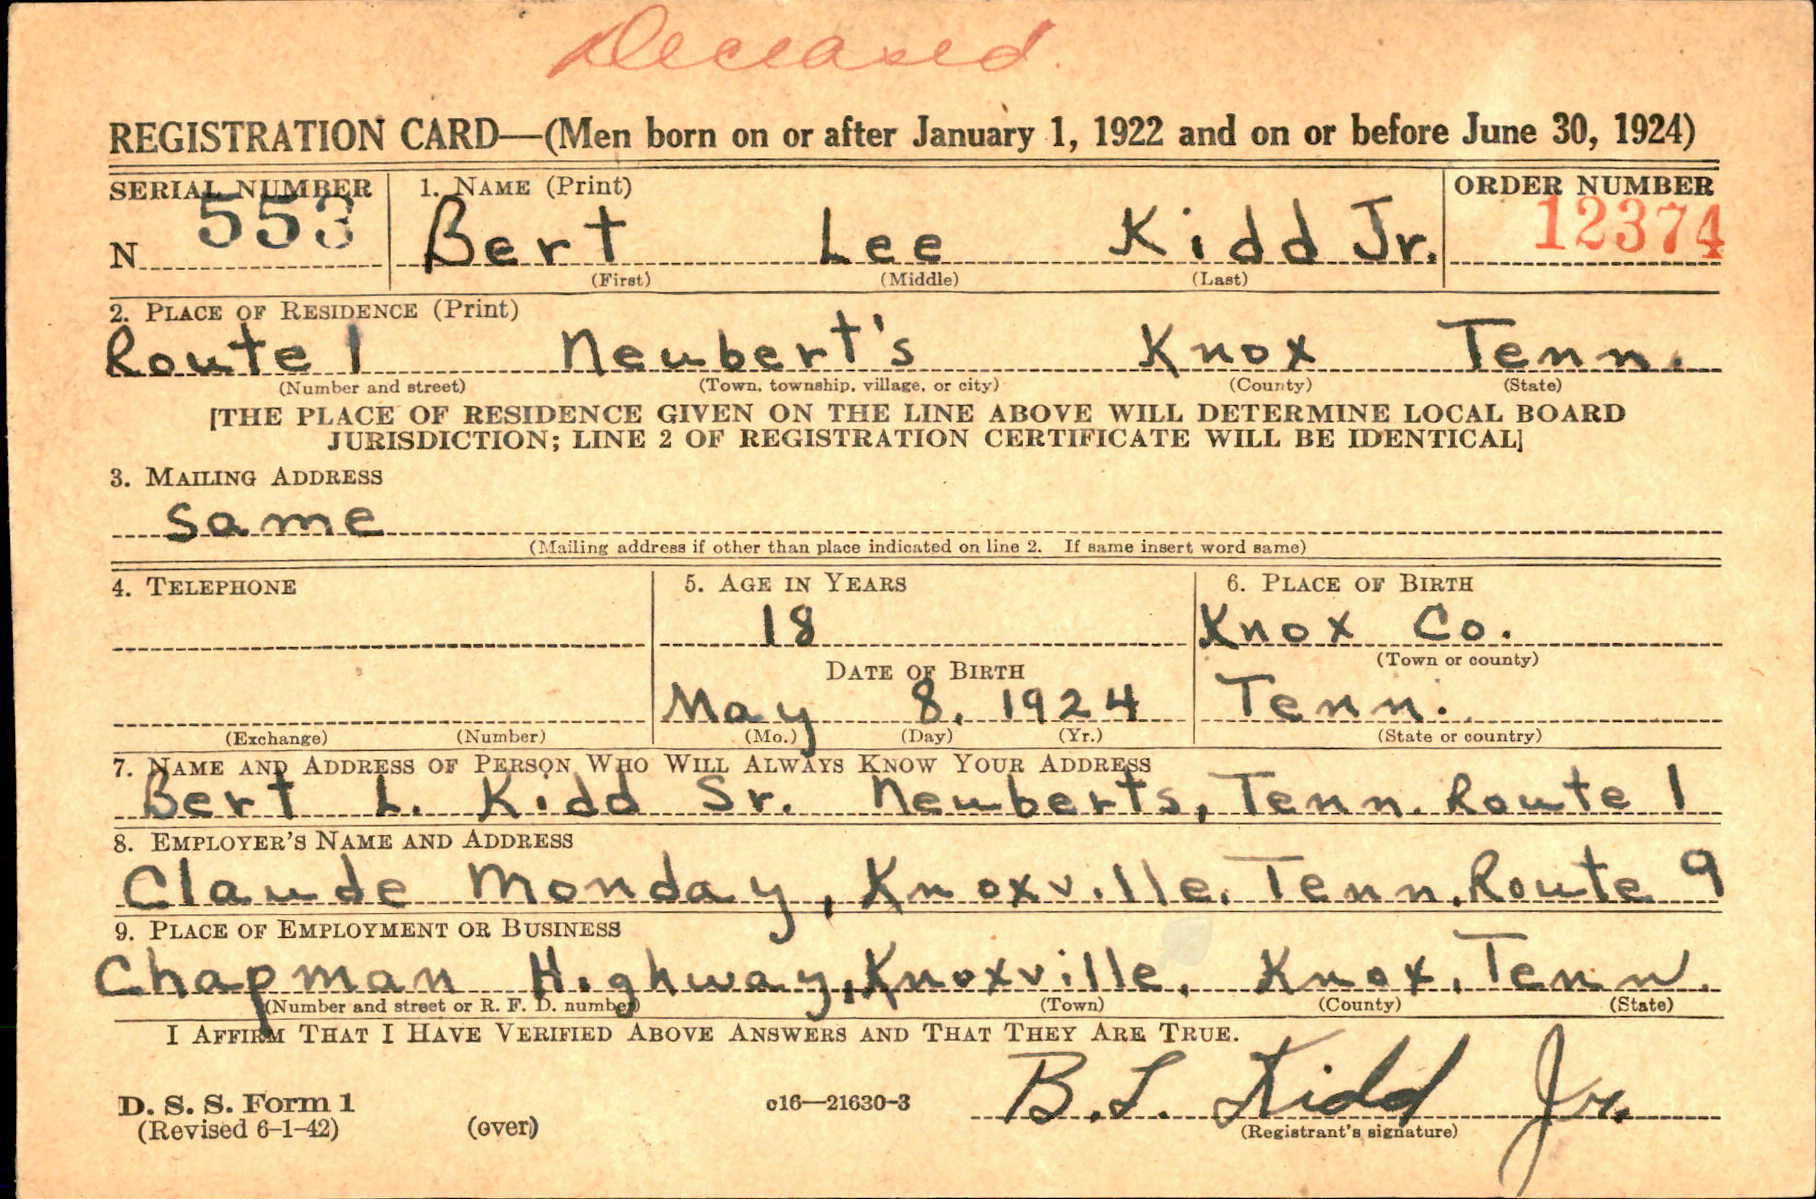 Deceased.
REGISTRATION CARD—(Men born on or after January 1, 1922 and on or before June 30, 1924)
SERIAL NUMBER 1. NAME (Print) ORDER NUMBER
N 553 Bert Lee Kidd Jr. 12374
(First) (Middle) (Last)
2. PLACE OF RESIDENCE (Print)
Route 1 Neubert's Knox Tenn.
(Number and street) (Town, township, village, or city) (County) (State)
[THE PLACE OF RESIDENCE GIVEN ON THE LINE ABOVE WILL DETERMINE LOCAL BOARD
JURISDICTION; LINE 2 OF REGISTRATION CERTIFICATE WILL BE IDENTICAL]
3. MAILING ADDRESS
Same
(Mailing address if other than place indicated on line 2. If same insert word same)
4. TELEPHONE 5. AGE IN YEARS 6. PLACE OF BIRTH
18 Knox Co.
DATE OF BIRTH (Town or county)
May 8, 1924 Tenn.
(Exchange) (Number) (Mo.) (Day) (Yr.) (State or country)
7. NAME AND ADDRESS OF PERSON WHO WILL ALWAYS KNOW YOUR ADDRESS
Bert L. Kidd Sr. Neuberts, Tenn. Route 1
8. EMPLOYER'S NAME AND ADDRESS
Claude Monday, Knoxville, Tenn. Route 9
9. PLACE OF EMPLOYMENT OR BUSINESS
Chapman Highway, Knoxville, Knox, Tenn.
(Number and street or R. F. D. number) (Town) (County) (State)
I AFFIRM THAT I HAVE VERIFIED ABOVE ANSWERS AND THAT THEY ARE TRUE.
D. S. S. Form 1 c16—21630-3 B. L. Kidd Jr.
(Revised 6-1-42) (over) (Registrant's signature)